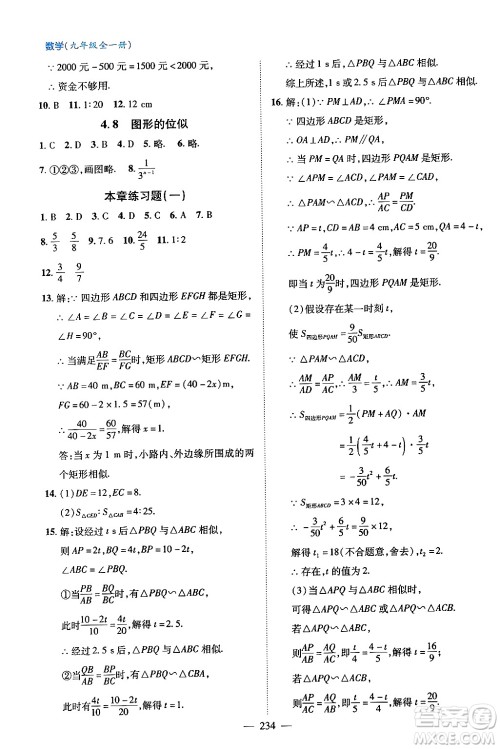 数学(九年级全一册)
∵ 2000元－500元＝1500元＜2000元，
∴ 资金不够用.
10. B　11. 1∶20　12. 12 cm
4.8　图形的位似
1. C　2. D　3. C　4. D　5. B　6. A
7. ①②③，画图略.　8. 1/3^{n-1}
本章练习题(一)
1. B　2. D　3. A　4. D　5. B　6. C　7. B
8. 5/3　5/8　9. 7.6　10. 24/5　11. 1∶2
12. 3/4　9/4
13. 解：∵ 四边形 ABCD 和四边形 EFGH 都是矩形，
∴ ∠A ＝ ∠B ＝ ∠C ＝ ∠D ＝ ∠E ＝ ∠F ＝ ∠G ＝
∠H＝90°.
∴ 当满足 AB/EF＝BC/FG 时，矩形 ABCD∽矩形 EFGH.
∵ AB＝40 m，BC＝60 m，EF＝(40－2x)m，
FG＝60－2＝58(m)，
∴ 40/(40－2x)＝60/58，解得 x＝2/3.
答：当 x 为 2/3 m 时，小路内、外边缘所围成的两个
矩形相似.
14. (1)DE＝12，EC＝8.
(2)S△CED∶S△CAB
15. 解：设经过 t s 后，△PBQ 与△ABC 相似，
则 AP＝2t，BQ＝4t，BP＝10－2t.
∠PBQ＝∠ABC.
①当 PB/AB＝BQ/BC 时，有△PBQ∽△ABC，
此时 (10－2t)/10＝4t/20，解得 t＝2.5.
②当 QB/AB＝PB/BC 时，有△PBQ∽△CBA，
此时 4t/10＝(10－2t)/20，解得 t＝1.
∴ 经过 1 s 后，△PBQ 与△ABC 相似.
综上所述，经过 1 s 或 2.5 s 后，△PBQ 与△ABC
相似.
16. 解：(1)∵ PM⊥AD，∴ ∠PMA＝90°.
∵ 四边形 ABCD 是矩形，
∴ OA＝OD，∴ ∠CAD＝∠BDA.
当 PM＝QA 时，四边形 PQAM 是矩形，
∵ ∠PAM＝∠ACD，∠PMA＝∠CDA，
∴ △PAM∽△ACD，∴ AP/AC＝PM/CD.
∵ AP＝t，AC＝5 cm，CD＝4 cm，QA＝4－t，
∴ PM＝4/5 t，∴ 4/5 t＝4－t，解得 t＝20/9.
即当 t＝20/9 时，四边形 PQAM 是矩形.
(2)假设存在某一时刻 t，
使 S四边形PQAM＝9/50 S矩形ABCD.
∵ AM/AD＝AP/AC，∴ AM/3＝t/5，∴ AM＝3/5 t.
∴ S四边形PQAM＝1/2(PM＋AQ)·AM
＝1/2(4/5 t＋4－t)·3/5 t
＝－3/50 t²＋6/5 t，
∵ S矩形ABCD＝3×4＝12，
∴ －3/50 t²＋6/5 t＝9/50×12，
解得 t₁＝18(不合题意，舍去)，t₂＝2.
∴ 存在，t 的值为 2.
(3)当△APQ 与△ABC 相似时，
可得△APQ∽△ABC 或△APQ∽△ACB.
若△APQ∽△ABC，
则 AP/AB＝AQ/AC，∴ t/4＝(4－t)/5，解得 t＝16/9.
若△APQ∽△ACB，
则 AP/AC＝AQ/AB，∴ t/5＝(4－t)/4，解得 t＝20/9.
234